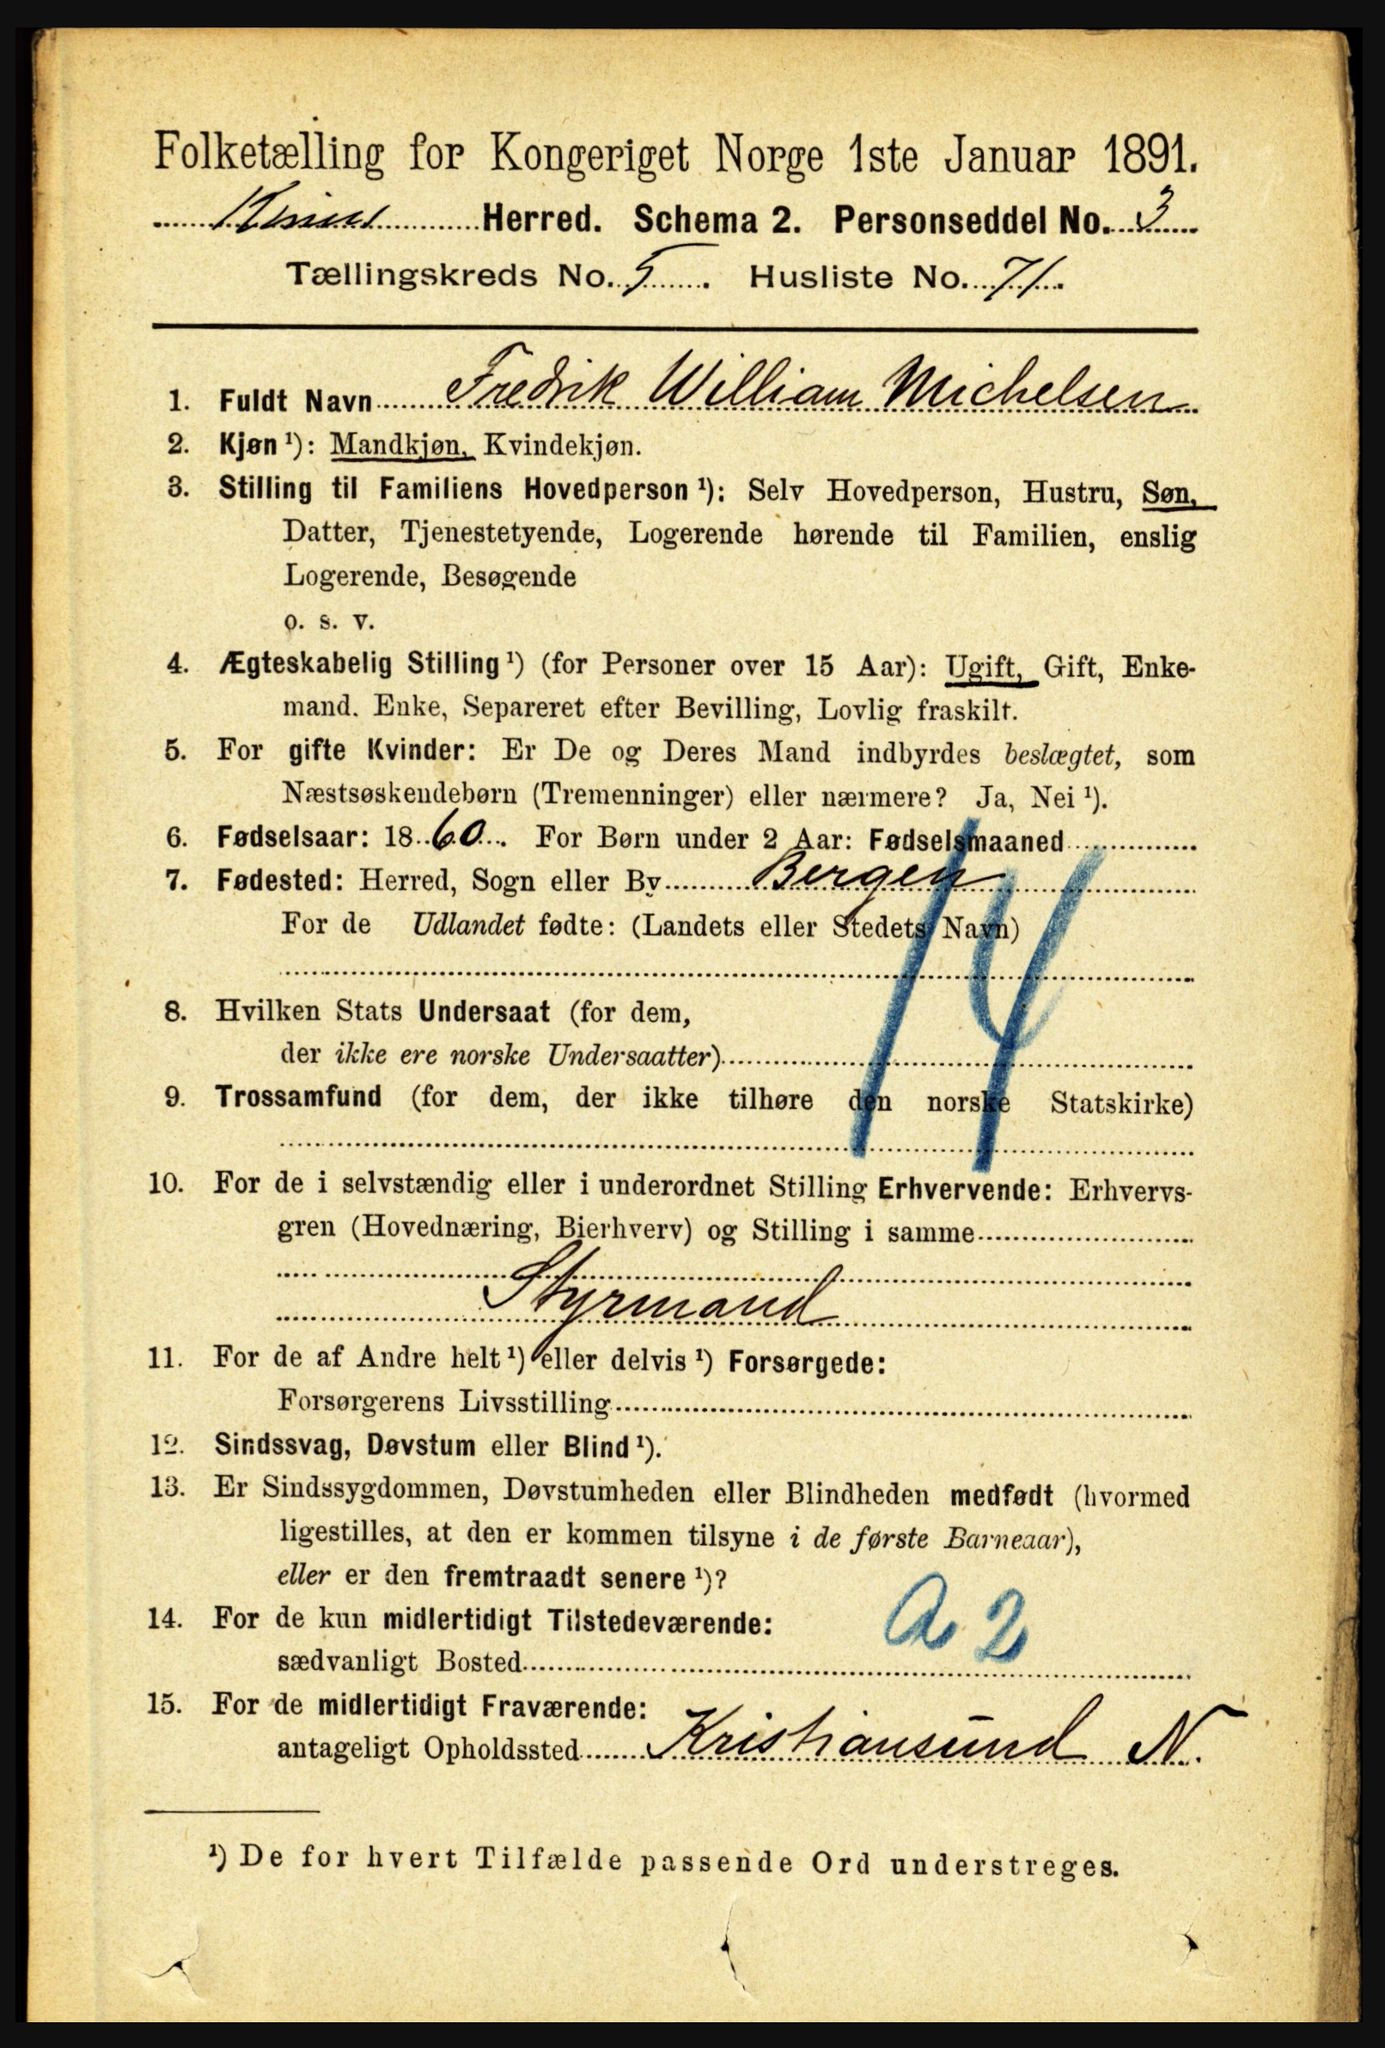 Folketælling for Kongeriget Norge 1ste Januar 1891.
Herred. Schema 2. Personseddel No. 3
Tællingskreds No. 5. Husliste No. 71.
1. Fuldt Navn Fredrik William Michelsen
2. Kjøn ¹): Mandkjøn, Kvindekjøn.
3. Stilling til Familiens Hovedperson ¹): Selv Hovedperson, Hustru, Søn,
Datter, Tjenestetyende, Logerende hørende til Familien, enslig
Logerende, Besøgende
o. s. v.
4. Ægteskabelig Stilling ¹) (for Personer over 15 Aar): Ugift, Gift, Enke-
mand. Enke, Separeret efter Bevilling, Lovlig fraskilt.
5. For gifte Kvinder: Er De og Deres Mand indbyrdes beslægtet, som
Næstsøskendebørn (Tremenninger) eller nærmere? Ja, Nei ¹).
6. Fødselsaar: 1860. For Børn under 2 Aar: Fødselsmaaned
7. Fødested: Herred, Sogn eller By Bergen
For de Udlandet fødte: (Landets eller Stedets Navn)
14
8. Hvilken Stats Undersaat (for dem,
der ikke ere norske Undersaatter)
9. Trossamfund (for dem, der ikke tilhøre den norske Statskirke)
10. For de i selvstændig eller i underordnet Stilling Erhvervende: Erhvervs-
gren (Hovednæring, Bierhverv) og Stilling i samme
Styrmand
11. For de af Andre helt ¹) eller delvis ¹) Forsørgede:
Forsørgerens Livsstilling
12. Sindssvag, Døvstum eller Blind ¹).
13. Er Sindssygdommen, Døvstumheden eller Blindheden medfødt (hvormed
ligestilles, at den er kommen tilsyne i de første Barneaar),
eller er den fremtraadt senere ¹)?
a 2
14. For de kun midlertidigt Tilstedeværende:
sædvanligt Bosted
15. For de midlertidigt Fraværende:
antageligt Opholdssted Kristiansund N.
¹) De for hvert Tilfælde passende Ord understreges.